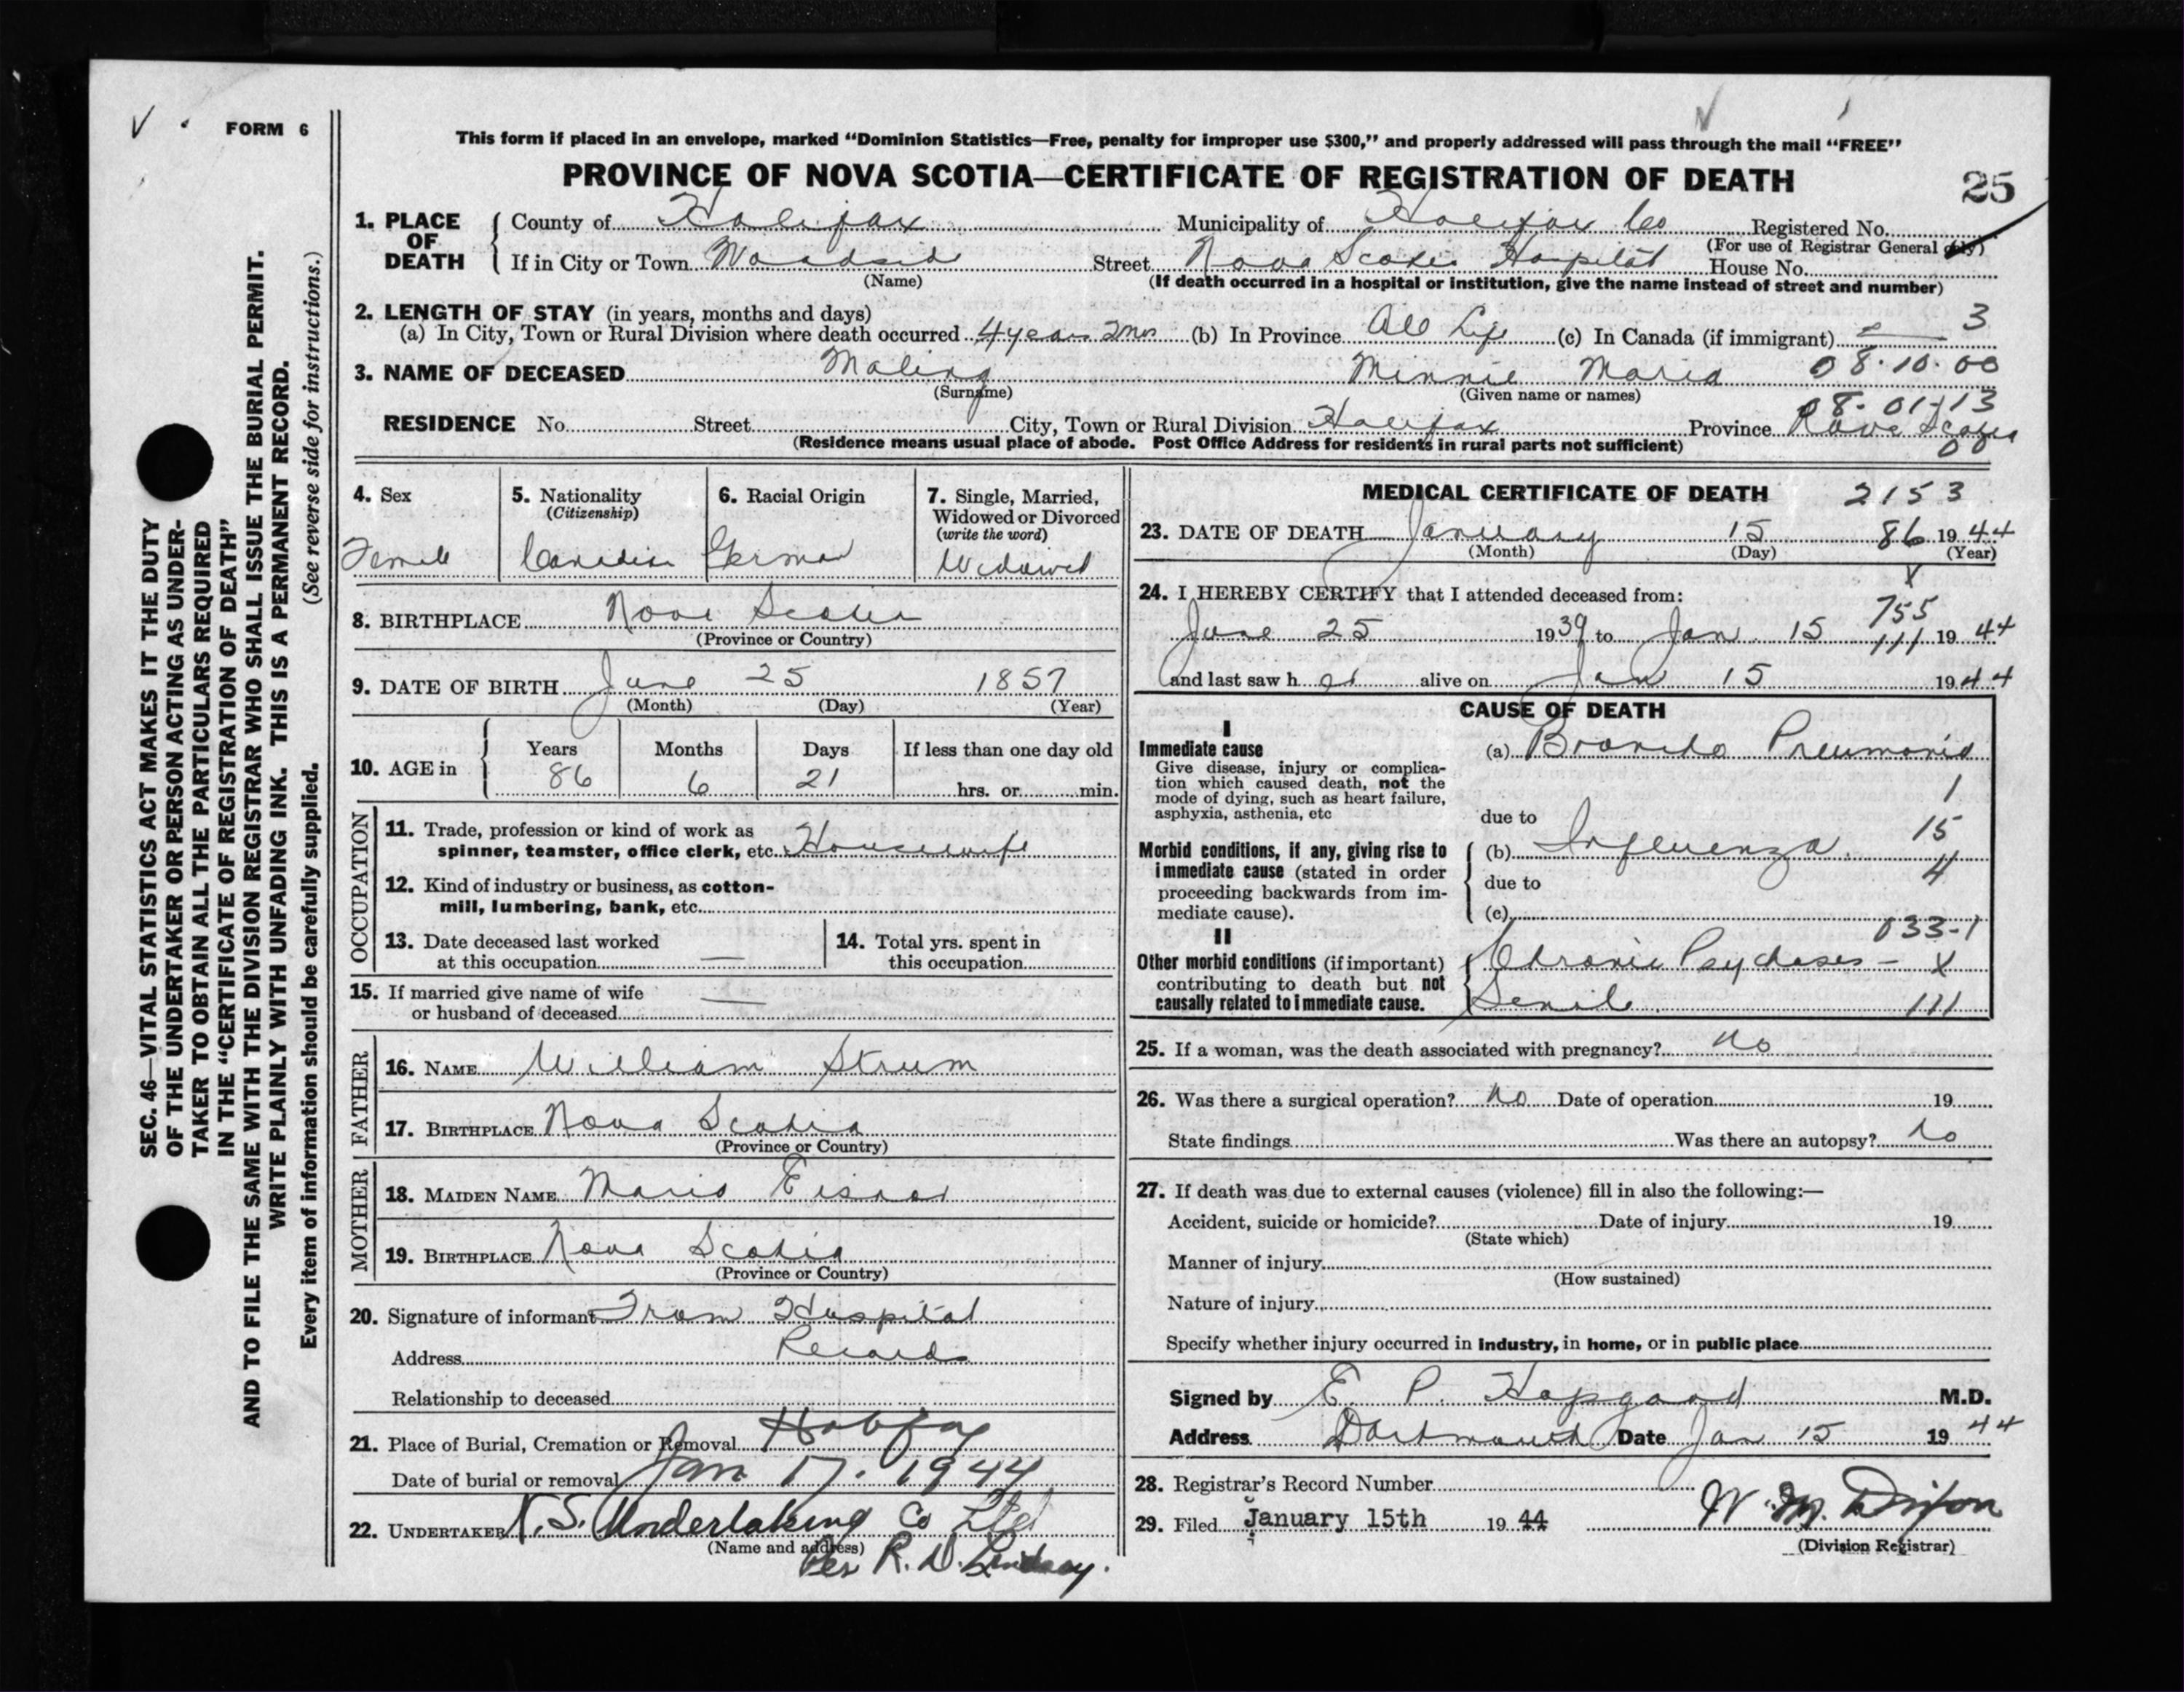 FORM 6
This form if placed in an envelope, marked “Dominion Statistics—Free, penalty for improper use $300,” and properly addressed will pass through the mail “FREE”
PROVINCE OF NOVA SCOTIA—CERTIFICATE OF REGISTRATION OF DEATH
25
1. PLACE OF DEATH
County of Halifax Municipality of Halifax Co Registered No.
(For use of Registrar General only)
If in City or Town Woodside Street Nova Scotia Hospital House No.
(Name) (If death occurred in a hospital or institution, give the name instead of street and number)
2. LENGTH OF STAY (in years, months and days) 3
(a) In City, Town or Rural Division where death occurred 4 years 2 mos (b) In Province All Life (c) In Canada (if immigrant) —
3. NAME OF DECEASED Maling Minnie Maria 08·10·00
(Surname) (Given name or names)
08-01-13
RESIDENCE No. Street City, Town or Rural Division Halifax Province Nova Scotia
(Residence means usual place of abode. Post Office Address for residents in rural parts not sufficient) 00
4. Sex Female
5. Nationality (Citizenship) Canadian
6. Racial Origin German
7. Single, Married, Widowed or Divorced (write the word) Widowed
8. BIRTHPLACE Nova Scotia
(Province or Country)
9. DATE OF BIRTH June 25 1857
(Month) (Day) (Year)
10. AGE in Years Months Days If less than one day old
86 6 21 hrs. or min.
OCCUPATION
11. Trade, profession or kind of work as
spinner, teamster, office clerk, etc. Housewife
12. Kind of industry or business, as cotton-
mill, lumbering, bank, etc.
13. Date deceased last worked
at this occupation —
14. Total yrs. spent in
this occupation
15. If married give name of wife
or husband of deceased —
FATHER
16. NAME William Strum
17. BIRTHPLACE Nova Scotia
(Province or Country)
MOTHER
18. MAIDEN NAME Maria
19. BIRTHPLACE Nova Scotia
(Province or Country)
20. Signature of informant From Hospital
Address Records
Relationship to deceased
21. Place of Burial, Cremation or Removal Halifax
Date of burial or removal Jan 17. 1944
22. UNDERTAKER N.S. Undertaking Co Ltd
(Name and address)
Per R. D. Lindsay.
MEDICAL CERTIFICATE OF DEATH 2153
23. DATE OF DEATH January 15 86 1944
(Month) (Day) (Year)
X
24. I HEREBY CERTIFY that I attended deceased from:
755
June 25 1939 to Jan 15 111 1944
and last saw h er alive on Jan 15 1944
CAUSE OF DEATH
I
Immediate cause (a) Broncho Pneumonia
Give disease, injury or complica-
tion which caused death, not the 1
mode of dying, such as heart failure,
asphyxia, asthenia, etc
due to 15
Morbid conditions, if any, giving rise to (b) Influenza.
immediate cause (stated in order due to 4
proceeding backwards from im-
mediate cause). (c)
033-1
II
Other morbid conditions (if important) Chronic Psychoses - X
contributing to death but not
causally related to immediate cause. Senile. 111
25. If a woman, was the death associated with pregnancy? no
26. Was there a surgical operation? no Date of operation 19
State findings Was there an autopsy? no
27. If death was due to external causes (violence) fill in also the following:—
Accident, suicide or homicide? Date of injury 19
(State which)
Manner of injury
(How sustained)
Nature of injury
Specify whether injury occurred in industry, in home, or in public place
Signed by E. P. Hopgood M.D.
Address Dartmouth Date Jan 15 1944
28. Registrar's Record Number
29. Filed January 15th 19 44 W. M. Dixon
(Division Registrar)
SEC. 46—VITAL STATISTICS ACT MAKES IT THE DUTY
OF THE UNDERTAKER OR PERSON ACTING AS UNDER-
TAKER TO OBTAIN ALL THE PARTICULARS REQUIRED
IN THE “CERTIFICATE OF REGISTRATION OF DEATH”
AND TO FILE THE SAME WITH THE DIVISION REGISTRAR WHO SHALL ISSUE THE BURIAL PERMIT.
WRITE PLAINLY WITH UNFADING INK. THIS IS A PERMANENT RECORD.
Every item of information should be carefully supplied. (See reverse side for instructions.)